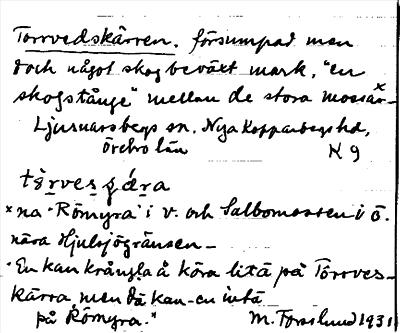 Torrvedskärren. försumpad men
doch något skogbeväxt mark, "en
skogstånge" mellan de stora mossar-
Ljusnarsbergs sn. Nya Kopparbergs hd,
Örebro län K 9
törvesçära
×na - Römyra i v. och Salbomossen i ö.
nära Hjulsjögränsen -
"En kan krångla å köra litä på Törrves-
kärra, men dä kan-en intä
på Römyra." M. Forslund 1931